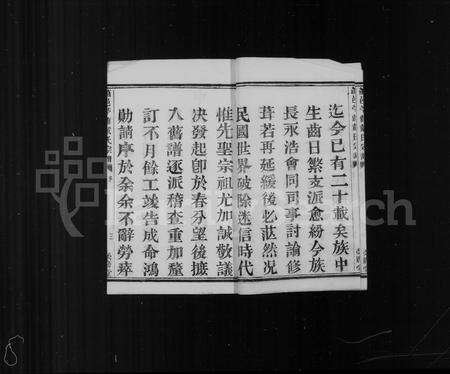 迄今已有二十載矣族中
生齒日繁支派愈紛今族
長永浩會同司事討論修
葺若再延緩後必茫然况
民國世界破除迷信時代
惟先聖宗祖尤加誠敬議
决發起卽於春分望後摭
入舊譜逐派稽查重加釐
訂不月餘工竣告成命鴻
勛請序於余余不辭勞瘁